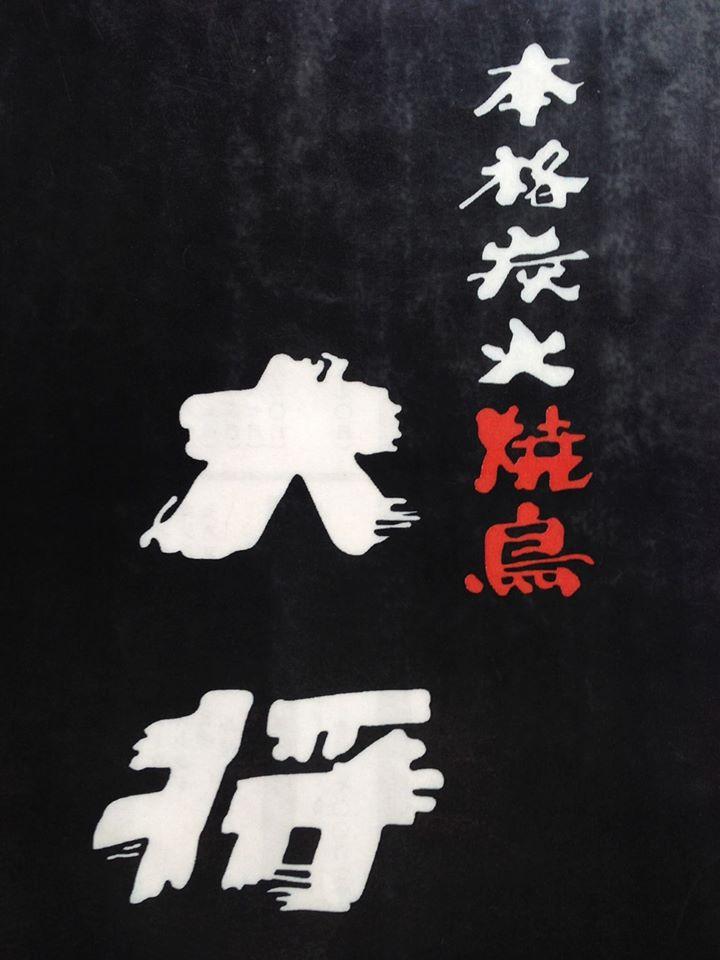 本格炭火焼鳥
大将